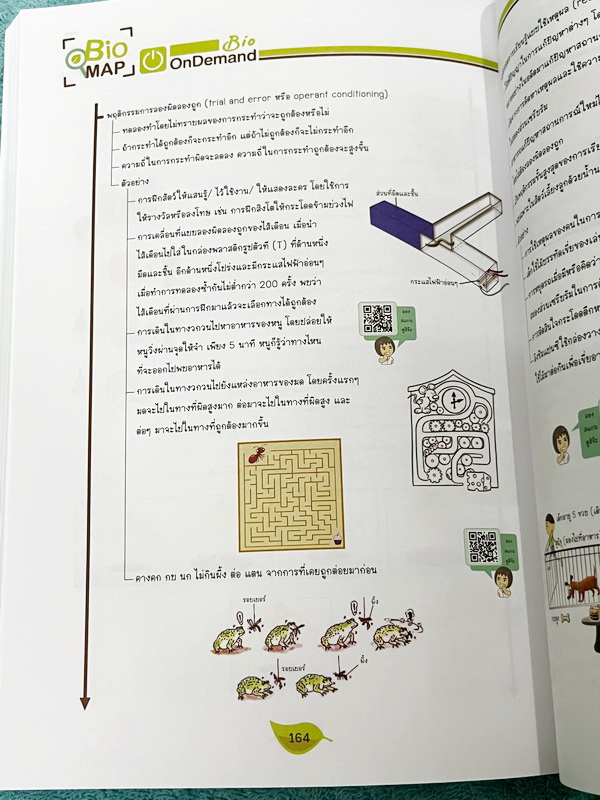 Bio
MAP
Bio
OnDemand
พฤติกรรมการลองผิดลองถูก (trial and error หรือ operant conditioning)
ทดลองทำโดยไม่ทราบผลของการกระทำว่าจะถูกต้องหรือไม่
ถ้ากระทำได้ถูกต้องก็จะกระทำอีก แต่ถ้าไม่ถูกต้องก็จะไม่กระทำอีก
ความถี่ในการกระทำผิดจะลดลง ความถี่ในการกระทำถูกต้องจะสูงขึ้น
ตัวอย่าง
การฝึกสัตว์ให้แสนรู้/ ไว้ใช้งาน/ ให้แสดงละคร โดยใช้การ
ให้รางวัลหรือลงโทษ เช่น การฝึกสิงโตให้กระโดดข้ามบ่วงไฟ
การเคลื่อนที่แบบลองผิดลองถูกของไส้เดือน เมื่อนำ
ไส้เดือนไปใส่ในกล่องพลาสติกรูปตัวที (T) ที่ด้านหนึ่ง
มืดและชื้น อีกด้านหนึ่งโปร่งและมีกระแสไฟฟ้าอ่อนๆ
เมื่อทำการทดลองซ้ำกันไม่ต่ำกว่า 200 ครั้ง พบว่า
ไส้เดือนที่ผ่านการฝึกมาแล้วจะเลือกทางได้ถูกต้อง
การเดินในทางวกวนไปหาอาหารของหนู โดยปล่อยให้
หนูวิ่งผ่านจุดให้จำ เพียง 5 นาที หนูก็รู้ว่าทางไหน
ที่จะออกไปพบอาหารได้
การเดินในทางวกวนไปยังแหล่งอาหารของมด โดยครั้งแรกๆ
มดจะไปในทางที่ผิดสูงมาก ต่อมาจะไปในทางที่ผิดสูง และ
ต่อๆ มาจะไปในทางที่ถูกต้องมากขึ้น
ส่วนที่มืดและชื้น
กระแสไฟฟ้าอ่อนๆ
ลอง
สแกน
ดูสิจ๊ะ
ลอง
สแกน
ดูสิจ๊ะ
คางคก กบ นก ไม่กินผึ้ง ต่อ แตน จากการที่เคยถูกต่อยมาก่อน
รอยเยอร์
ผึ้ง
รอยเยอร์
ผึ้ง
164
ลอง
สแกน
ดูสิจ๊ะ